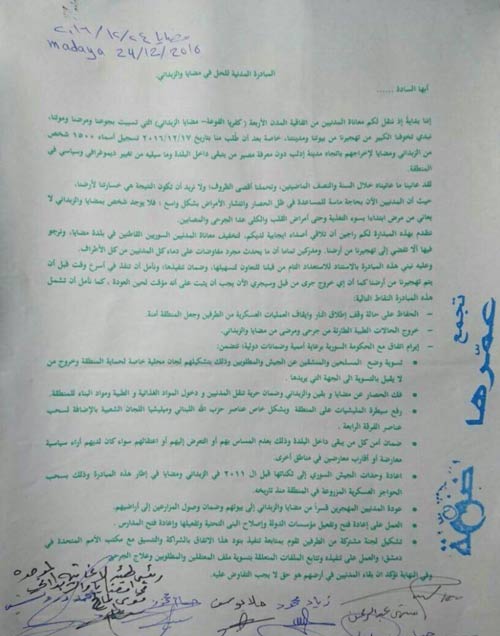 مضايا ٢٠١٦/١٢/٢٤
madaya 24/12/2016
المبادرة المدنية للحل في مضايا والزبداني.
أيها السادة ......
إننا بداية إذ ننقل لكم معاناة المدنيين من اتفاقية المدن الأربعة (كفريا الفوعة- مضايا الزبداني) التي تسببت بجوعنا ومرضنا وموتنا،
نبدي تخوفنا الكبير من تهجيرنا من بيوتنا ومدينتنا، خاصة بعد أن طُلب منا بتاريخ ٢٠١٦/١٢/١٧ تسجيل أسماء ١٥٠٠ شخص
من الزبداني ومضايا لإخراجهم باتجاه مدينة إدلب دون معرفة مصير من يتبقى داخل البلدة وما سيليه من تغيير ديموغرافي وسياسي في
المنطقة.
لقد عانينا ما عانيناه خلال السنة والنصف الماضيتين، وتحملنا أقصى الظروف؛ ولا نريد أن تكون النتيجة هي خسارتنا لأرضنا،
حيث أن المدنيين الآن بحاجة ماسة للمساعدة في ظل الحصار وانتشار الأمراض بشكل واسع ؛ فلا يوجد شخص بمضايا والزبداني لا
يعاني من مرض ابتداءا بسوء التغذية وحتى أمراض القلب والكلى عدا الجرحى والمصابين.
نتقدم بهذه المبادرة لكم راجين أن تلاقي أصداء ايجابية لديكم، لتخفيف معاناة المدنيين السوريين القاطنين في بلدة مضايا، ونرجو
فيها ألا تفضي إلى تهجيرنا من أرضنا. ومدركين تماما أن ما يحدث مجرد مفاوضات على دماء كل المدنيين من كل الأطراف.
وعليه نبني هذه المبادرة بالاستناد للاستعداد التام من قبلنا للتعاون لتسهيلها، وضمان تنفيذها؛ ونأمل أن تنفذ في أسرع وقت قبل أن
يتم تهجيرنا من أرضنا كما أن إي خروج جرى من قبل وسيجري الآن يجب أن يثبت على أنه مؤقت لحين العودة . كما نأمل أن تشمل
هذه المبادرة النقاط التالية:
– الحفاظ على حالة وقف إطلاق النار وإيقاف العمليات العسكرية من الطرفين وجعل المنطقة آمنة.
– خروج الحالات الطبية الطارئة من جرحى ومرضى من مضايا والزبداني.
– إبرام اتفاق مع الحكومة السورية برعاية أممية وضمانات دولية؛ تتضمن:
• تسوية وضع المسلحين والمنشقين عن الجيش والمطلوبين وذلك بتشكيلهم لجان محلية خاصة لحماية المنطقة وخروج من
لا يقبل بالتسوية الى الجهة التي يريدها .
• فك الحصار عن مضايا و بقين والزبداني وضمان حرية تنقل المدنيين و دخول المواد الغذائية و الطبية ومواد البناء للمنطقة.
• رفع سيطرة المليشيات على المنطقة وبشكل خاص عناصر حزب الله اللبناني وميليشيا اللجان الشعبية بالإضافة لسحب
عناصر الفرقة الرابعة .
• ضمان أمن كل من يبقى داخل البلدة وذلك بعدم المساس بهم أو التعرض إليهم أو اعتقالهم سواء كان لديهم آراء سياسية
معارضة أو أقارب معارضين في مناطق أخرى.
• اعادة وحدات الجيش السوري إلى ثكناتها قبل ال ٢٠١١ في الزبداني ومضايا في إطار هذه المبادرة وذلك بسحب
الحواجز العسكرية المزروعة في المنطقة منذ تاريخه.
• عودة المدنيين المهجرين قسراً من مضايا والزبداني إلى بيوتهم وضمان وصول المزارعين إلى أراضيهم.
• العمل على إعادة فتح وتفعيل مؤسسات الدولة وإصلاح البنى التحتية وتفعيلها وإعادة فتح المدارس .
• تشكيل لجنة مشتركة من الطرفين تقوم بمتابعة تنفيذ بنود هذا الاتفاق بالشراكة والتنسيق مع مكتب الأمم المتحدة في
دمشق؛ والعمل على تنفيذه وتتابع الملفات المتعلقة بتسوية ملف المعتقلين والمطلوبين وعلاج الجرحى
وفي النهاية تؤكد أن بقاء المدنيين في أرضهم هو حق لا يجب التفاوض عليه.
تجمع
عمّرها
زياد محمود
حسام محمود